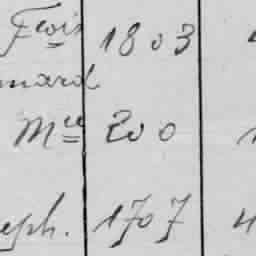 Fcois 1803
nard
Mce 200
eph. 1707 4